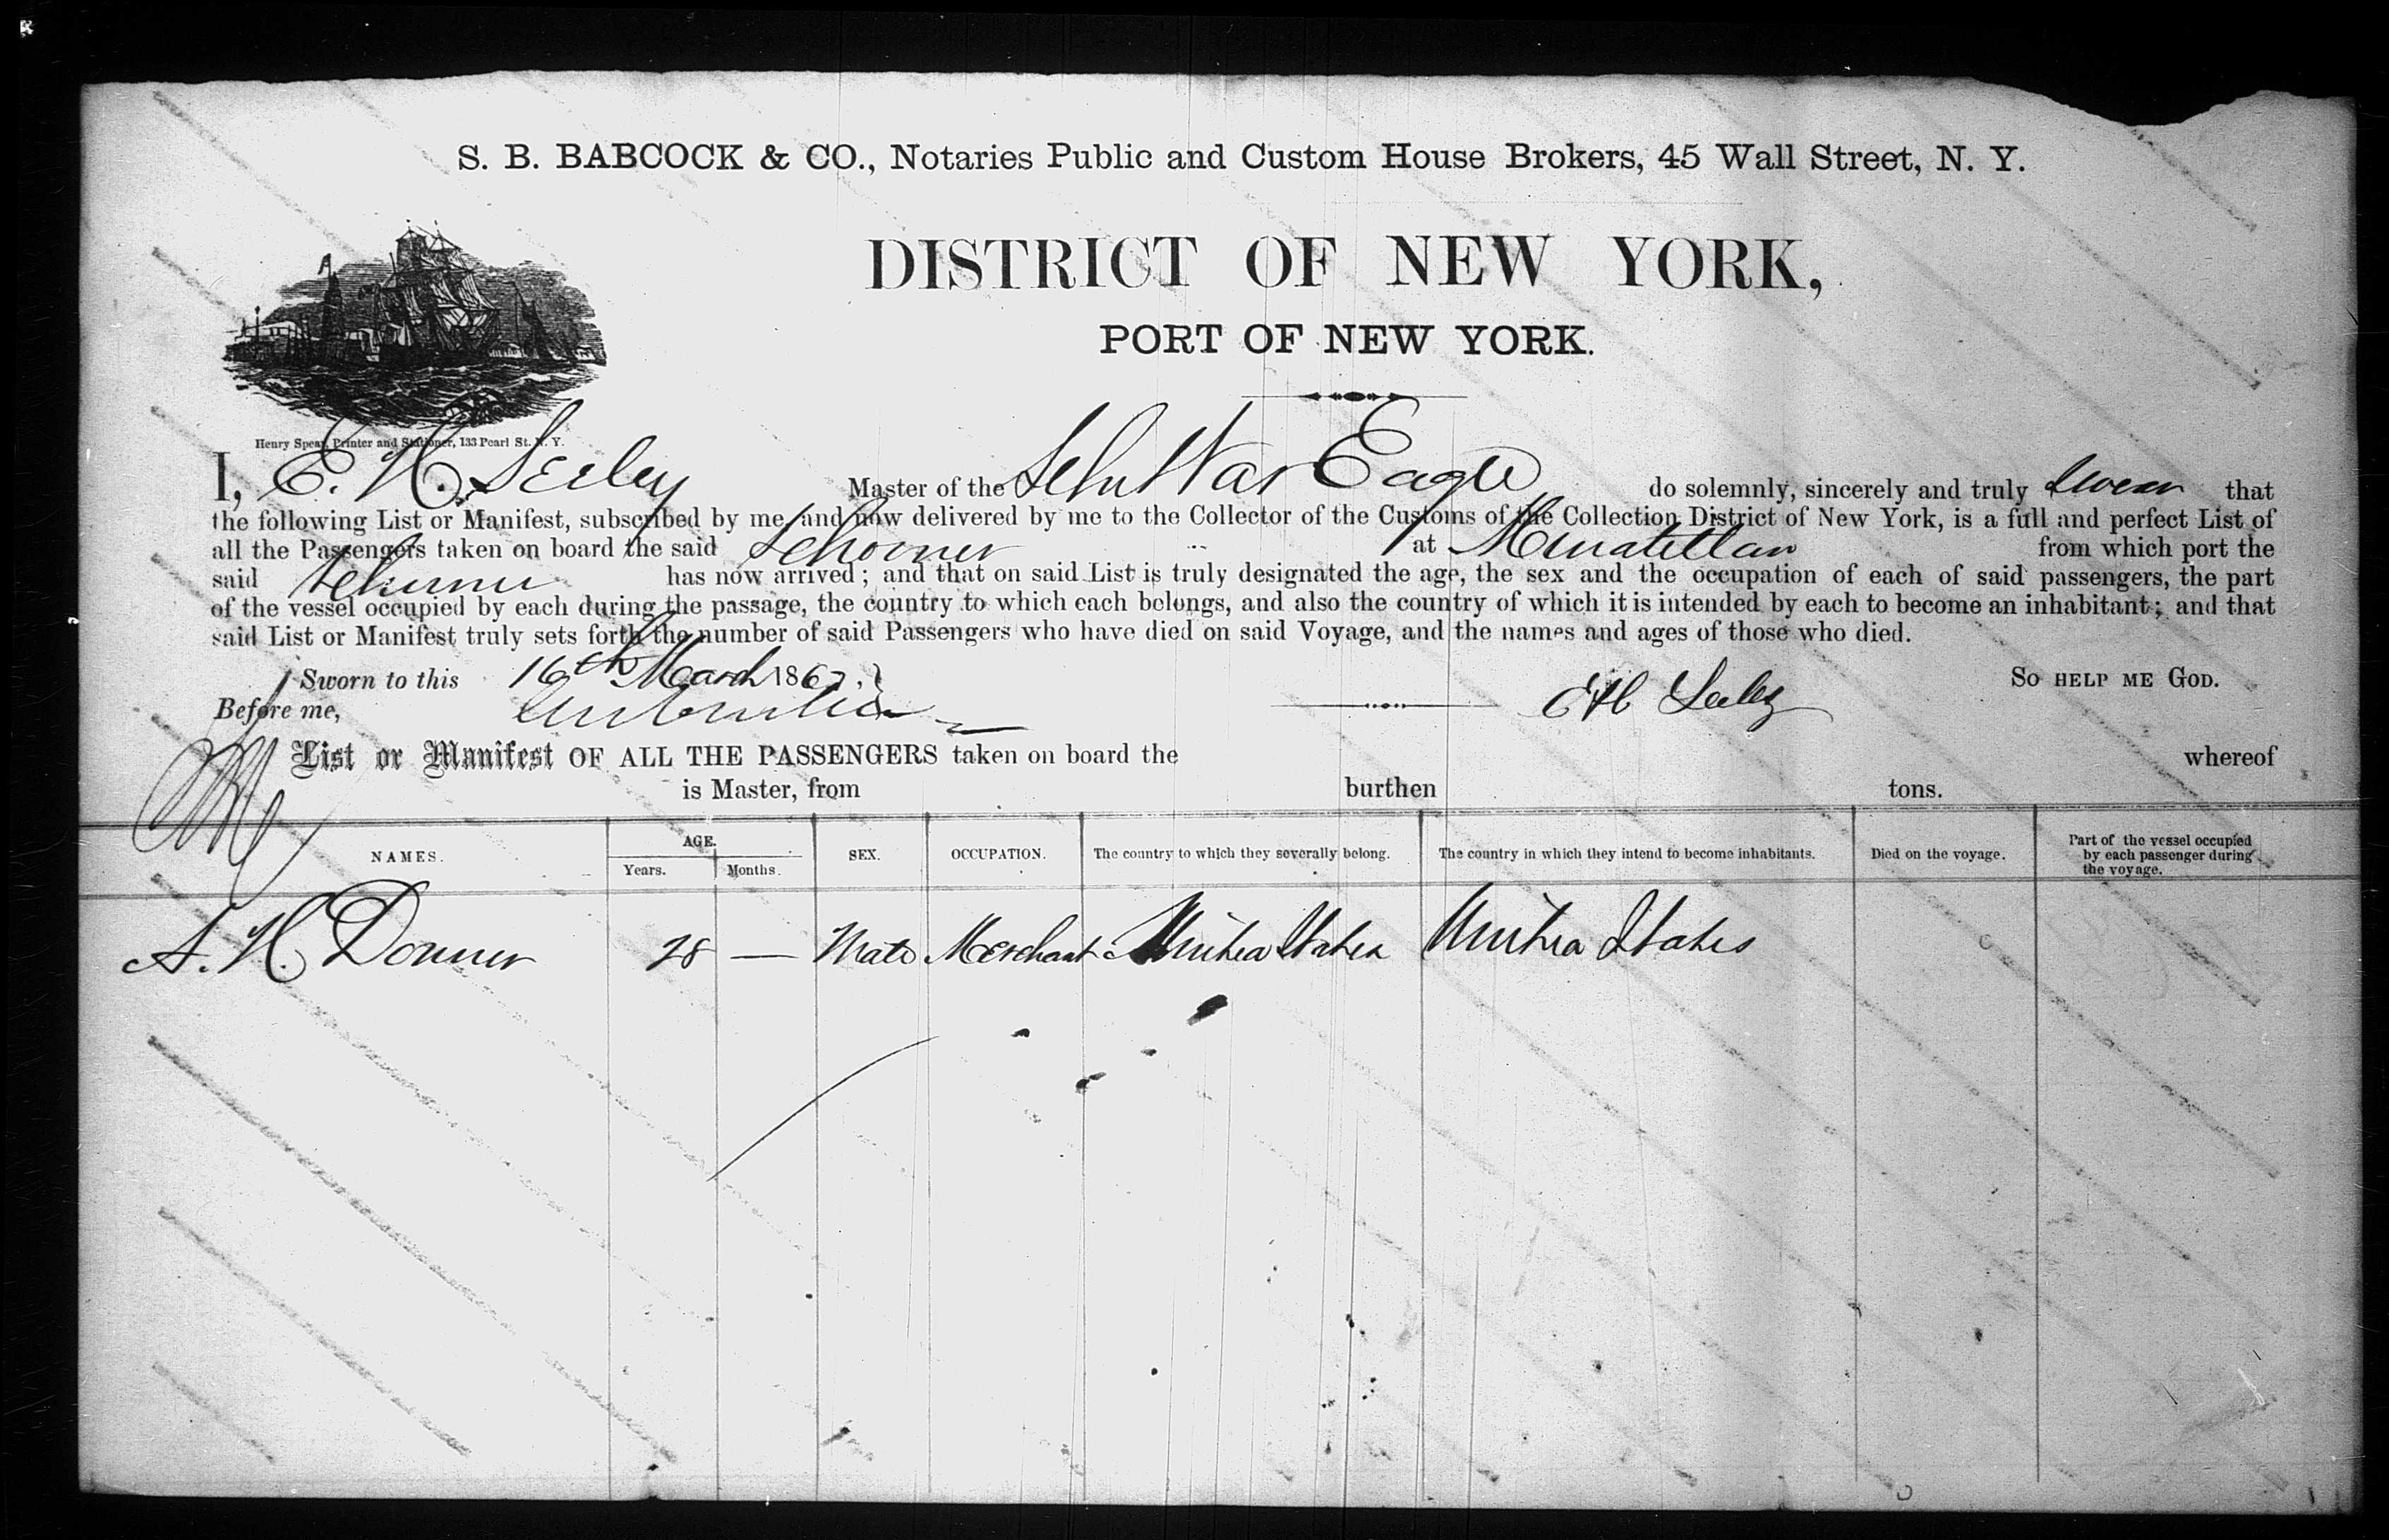 S. B. BABCOCK & CO., Notaries Public and Custom House Brokers, 45 Wall Street, N. Y.
DISTRICT OF NEW YORK,
PORT OF NEW YORK.
Henry Spear, Printer and Stationer, 133 Pearl St. N. Y.
I, E. H. Seeley Master of the Schr War Eagle do solemnly, sincerely and truly swear that
the following List or Manifest, subscribed by me, and now delivered by me to the Collector of the Customs of the Collection District of New York, is a full and perfect List of
all the Passengers taken on board the said Schooner at Minatitlan from which port the
said Schooner has now arrived; and that on said List is truly designated the age, the sex and the occupation of each of said passengers, the part
of the vessel occupied by each during the passage, the country to which each belongs, and also the country of which it is intended by each to become an inhabitant; and that
said List or Manifest truly sets forth the number of said Passengers who have died on said Voyage, and the names and ages of those who died.
Sworn to this 16th March 186 So HELP ME GOD.
Before me, E H Seeley
List or Manifest OF ALL THE PASSENGERS taken on board the whereof
is Master, from burthen tons.
NAMES. AGE. Years. Months. SEX. OCCUPATION. The country to which they severally belong. The country in which they intend to become inhabitants. Died on the voyage. Part of the vessel occupied by each passenger during the voyage.
A. H. Donner 28 — Male Merchant United States United States